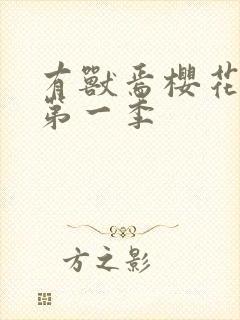 有獸焉櫻花
第一季
方之影